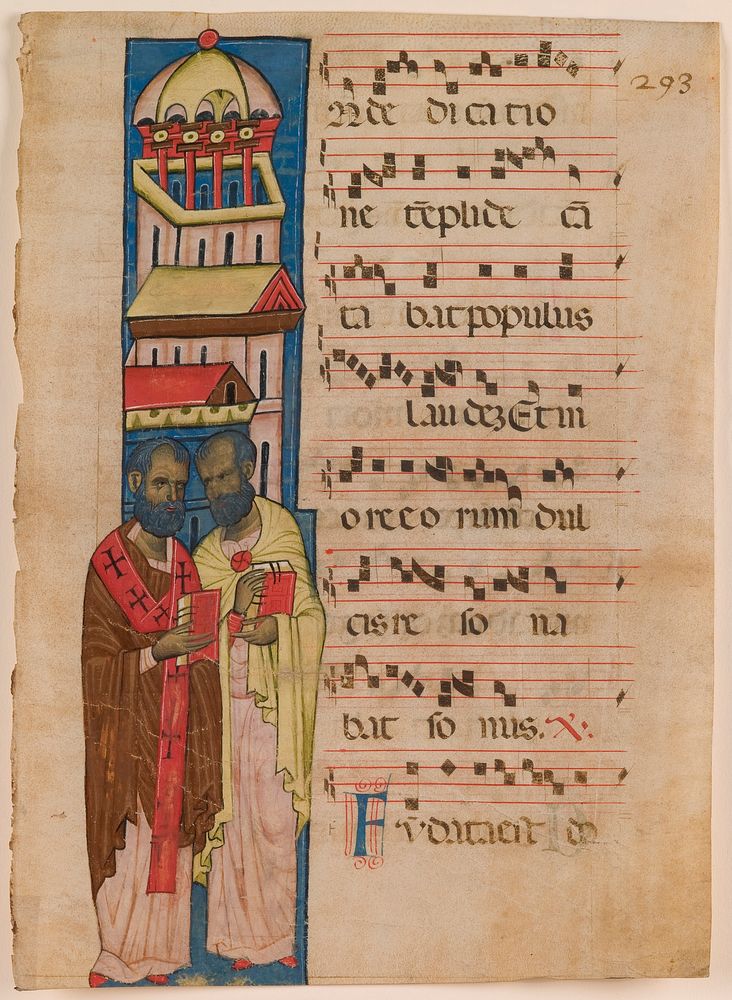 293
N de di ca tio
ne tēpli de cā
ta bat populus
laudeʒ Et in
o re eo rum dul
cis re so na
bat so nus. V:
Fūdata est do